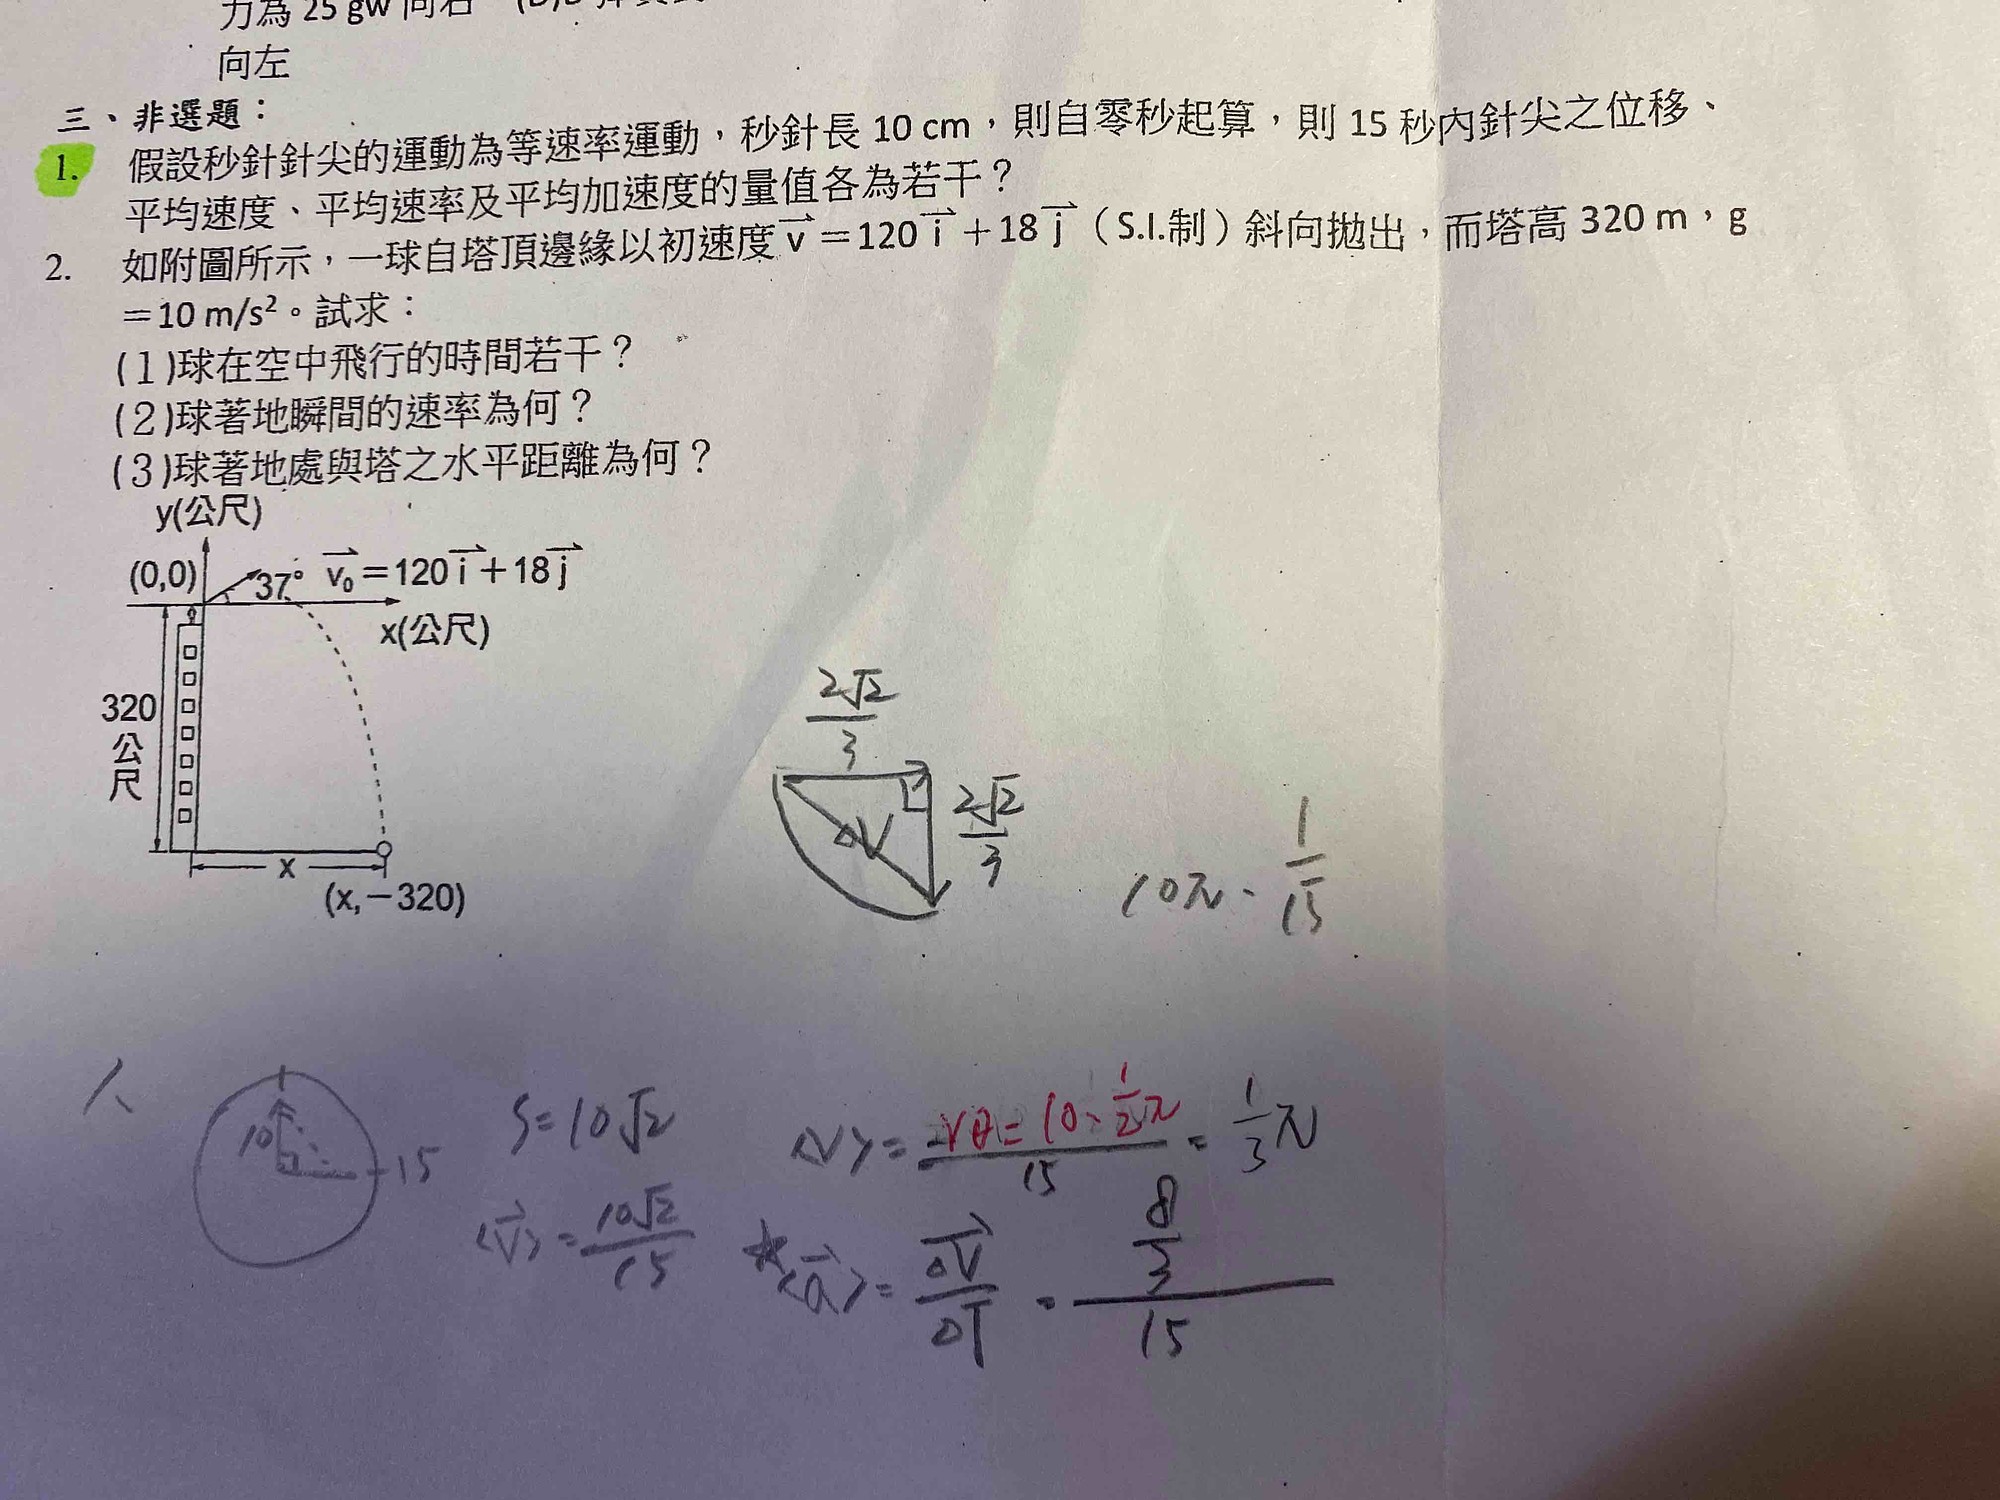 力為 25 gw 向右
向左
三、非選題：
1. 假設秒針針尖的運動為等速率運動，秒針長 10 cm，則自零秒起算，則 15 秒內針尖之位移、
平均速度、平均速率及平均加速度的量值各為若干？
2. 如附圖所示，一球自塔頂邊緣以初速度 v⃗＝120 i⃗＋18 j⃗（S.I.制）斜向拋出，而塔高 320 m，g
＝10 m/s²。試求：
(1)球在空中飛行的時間若干？
(2)球著地瞬間的速率為何？
(3)球著地處與塔之水平距離為何？
y(公尺)
(0,0) 37° v⃗₀＝120 i⃗＋18 j⃗
x(公尺)
320公尺
x
(x,－320)
2√2/3
2√2/3
ΔV
10π · 1/15
10
15
S=10√2
<V⃗>=10√2/15
<V>= rθ=10·1/2π / 15 = 1/3 π
<a⃗>= ΔV⃗/ΔT = 8/3 / 15